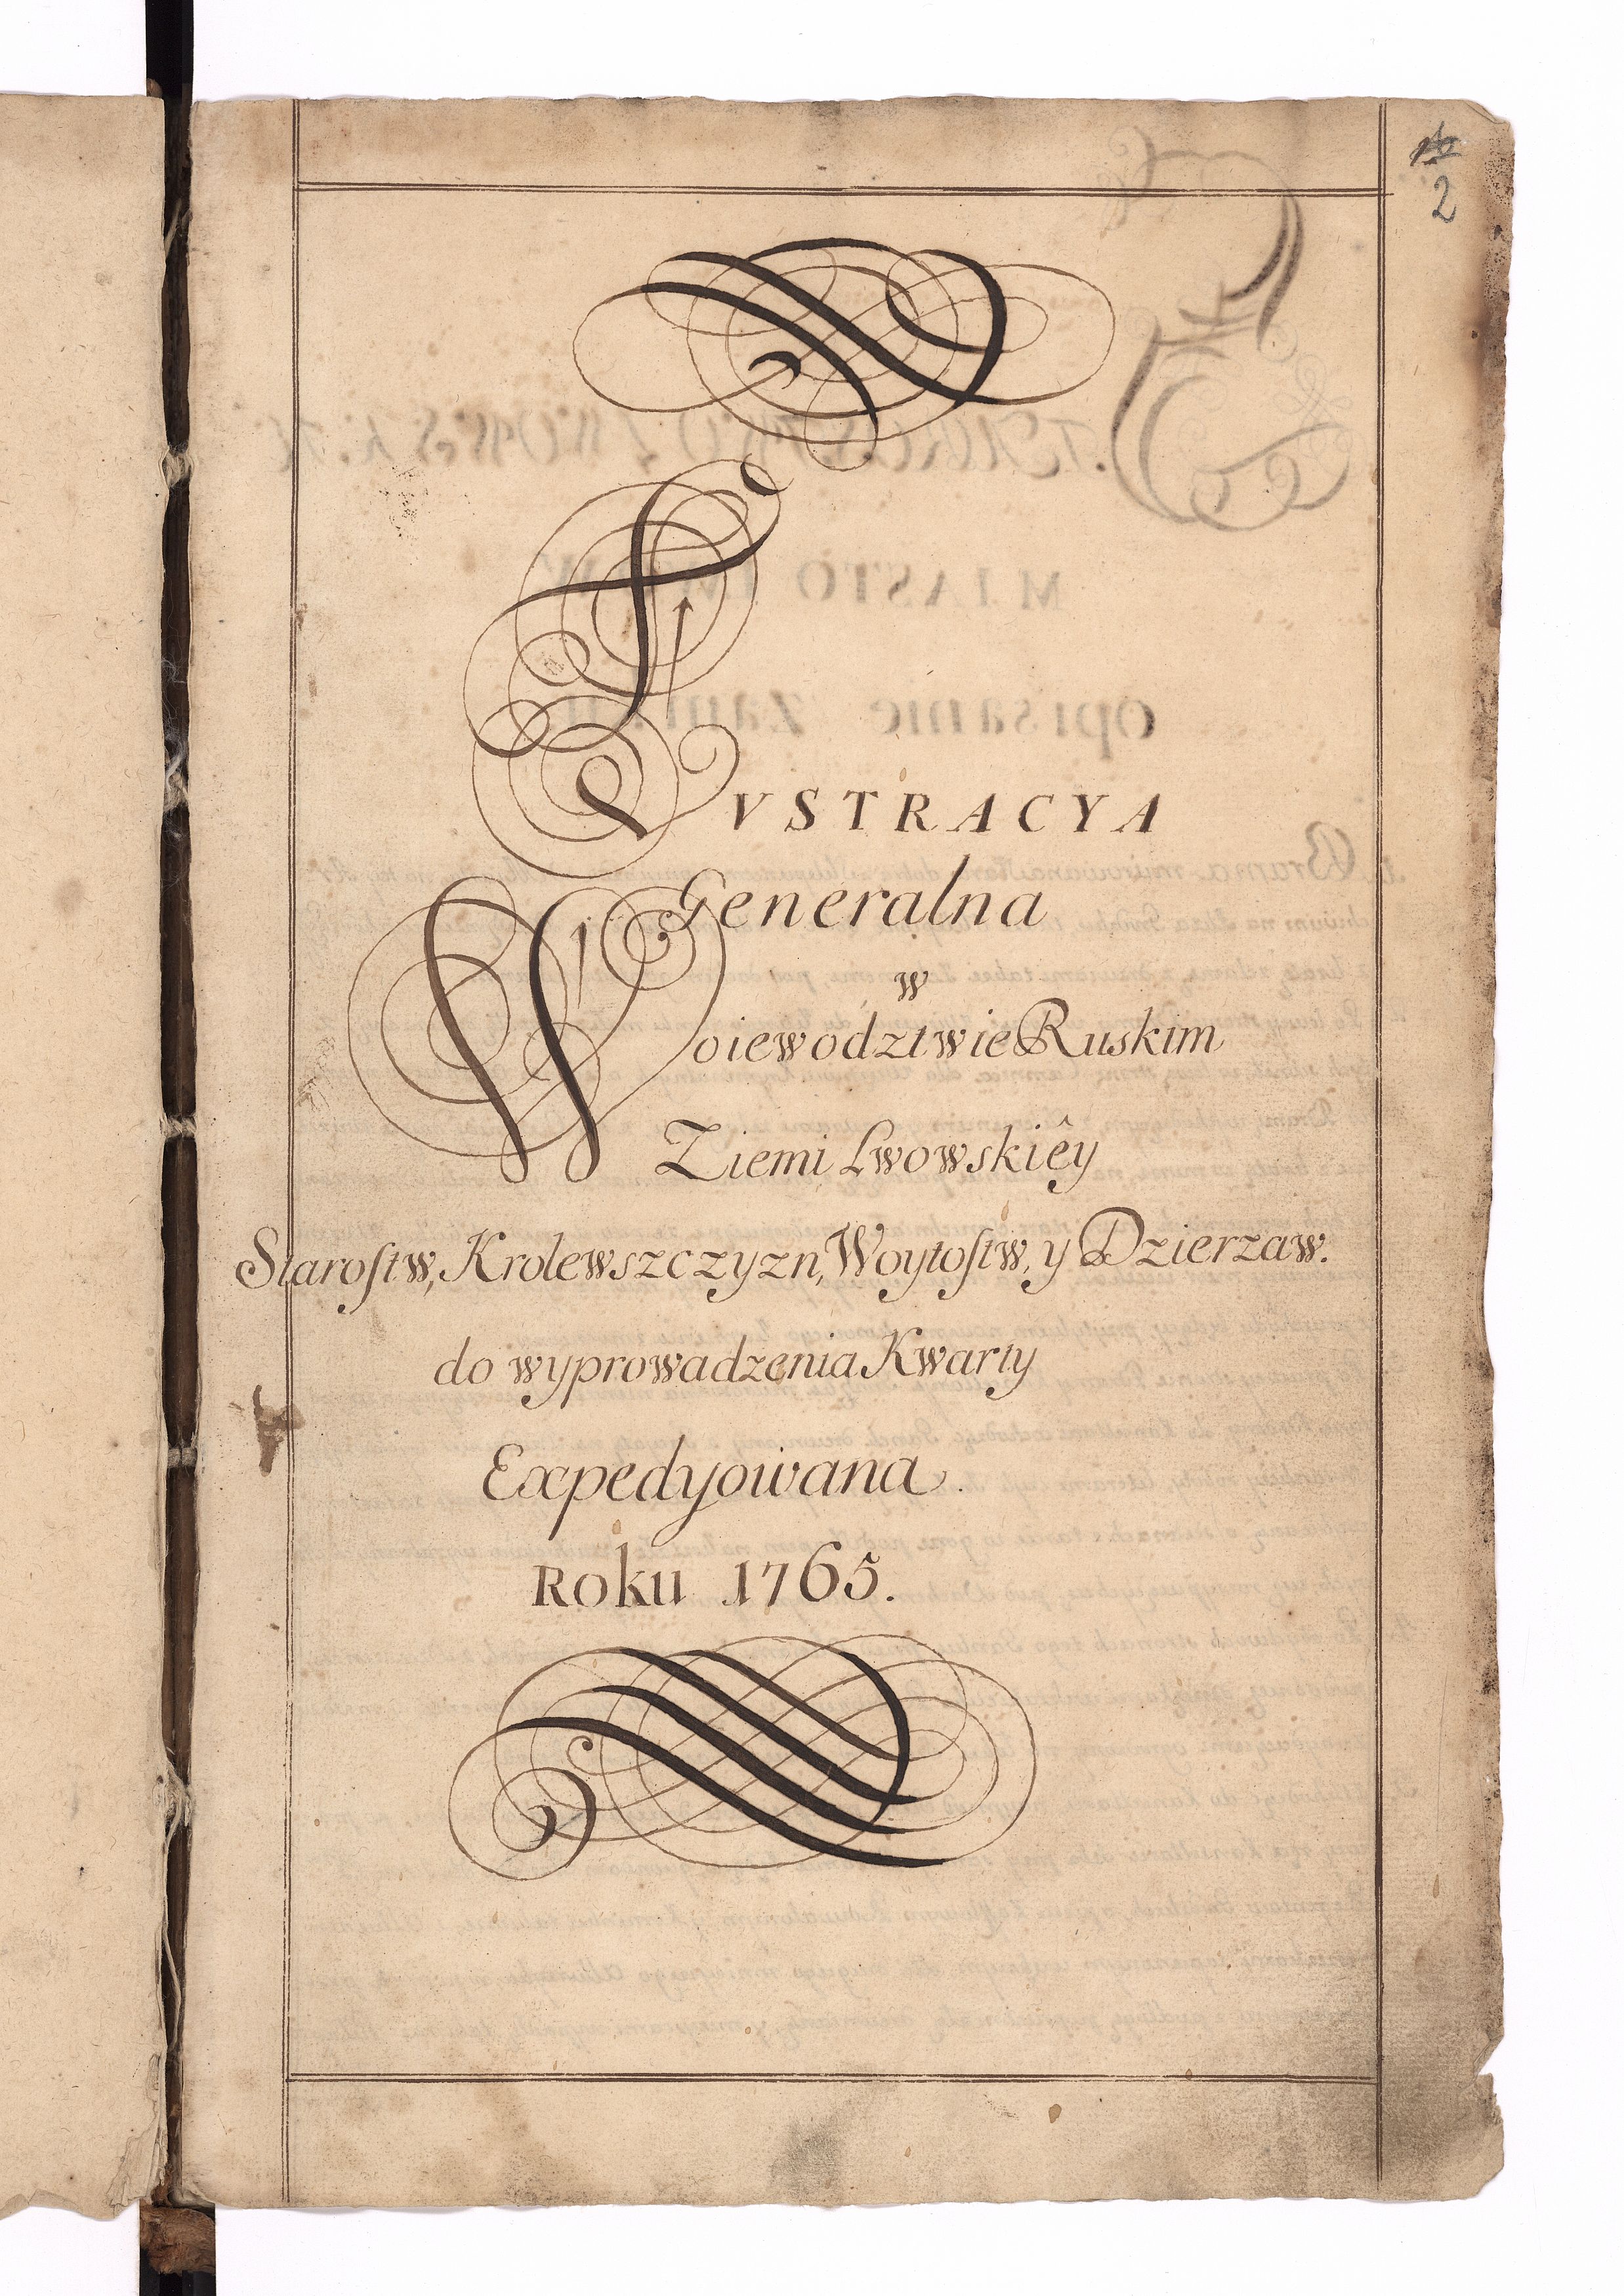 2
LVSTRACYA
Generalna
w
Woiewodztwie Ruskim
Ziemi Lwowskiêy
Starostw, Krolewszczyzn, Woytostw, y Dzierzaw.
do wyprowadzenia Kwarty
Expedyowana.
Roku 1765.